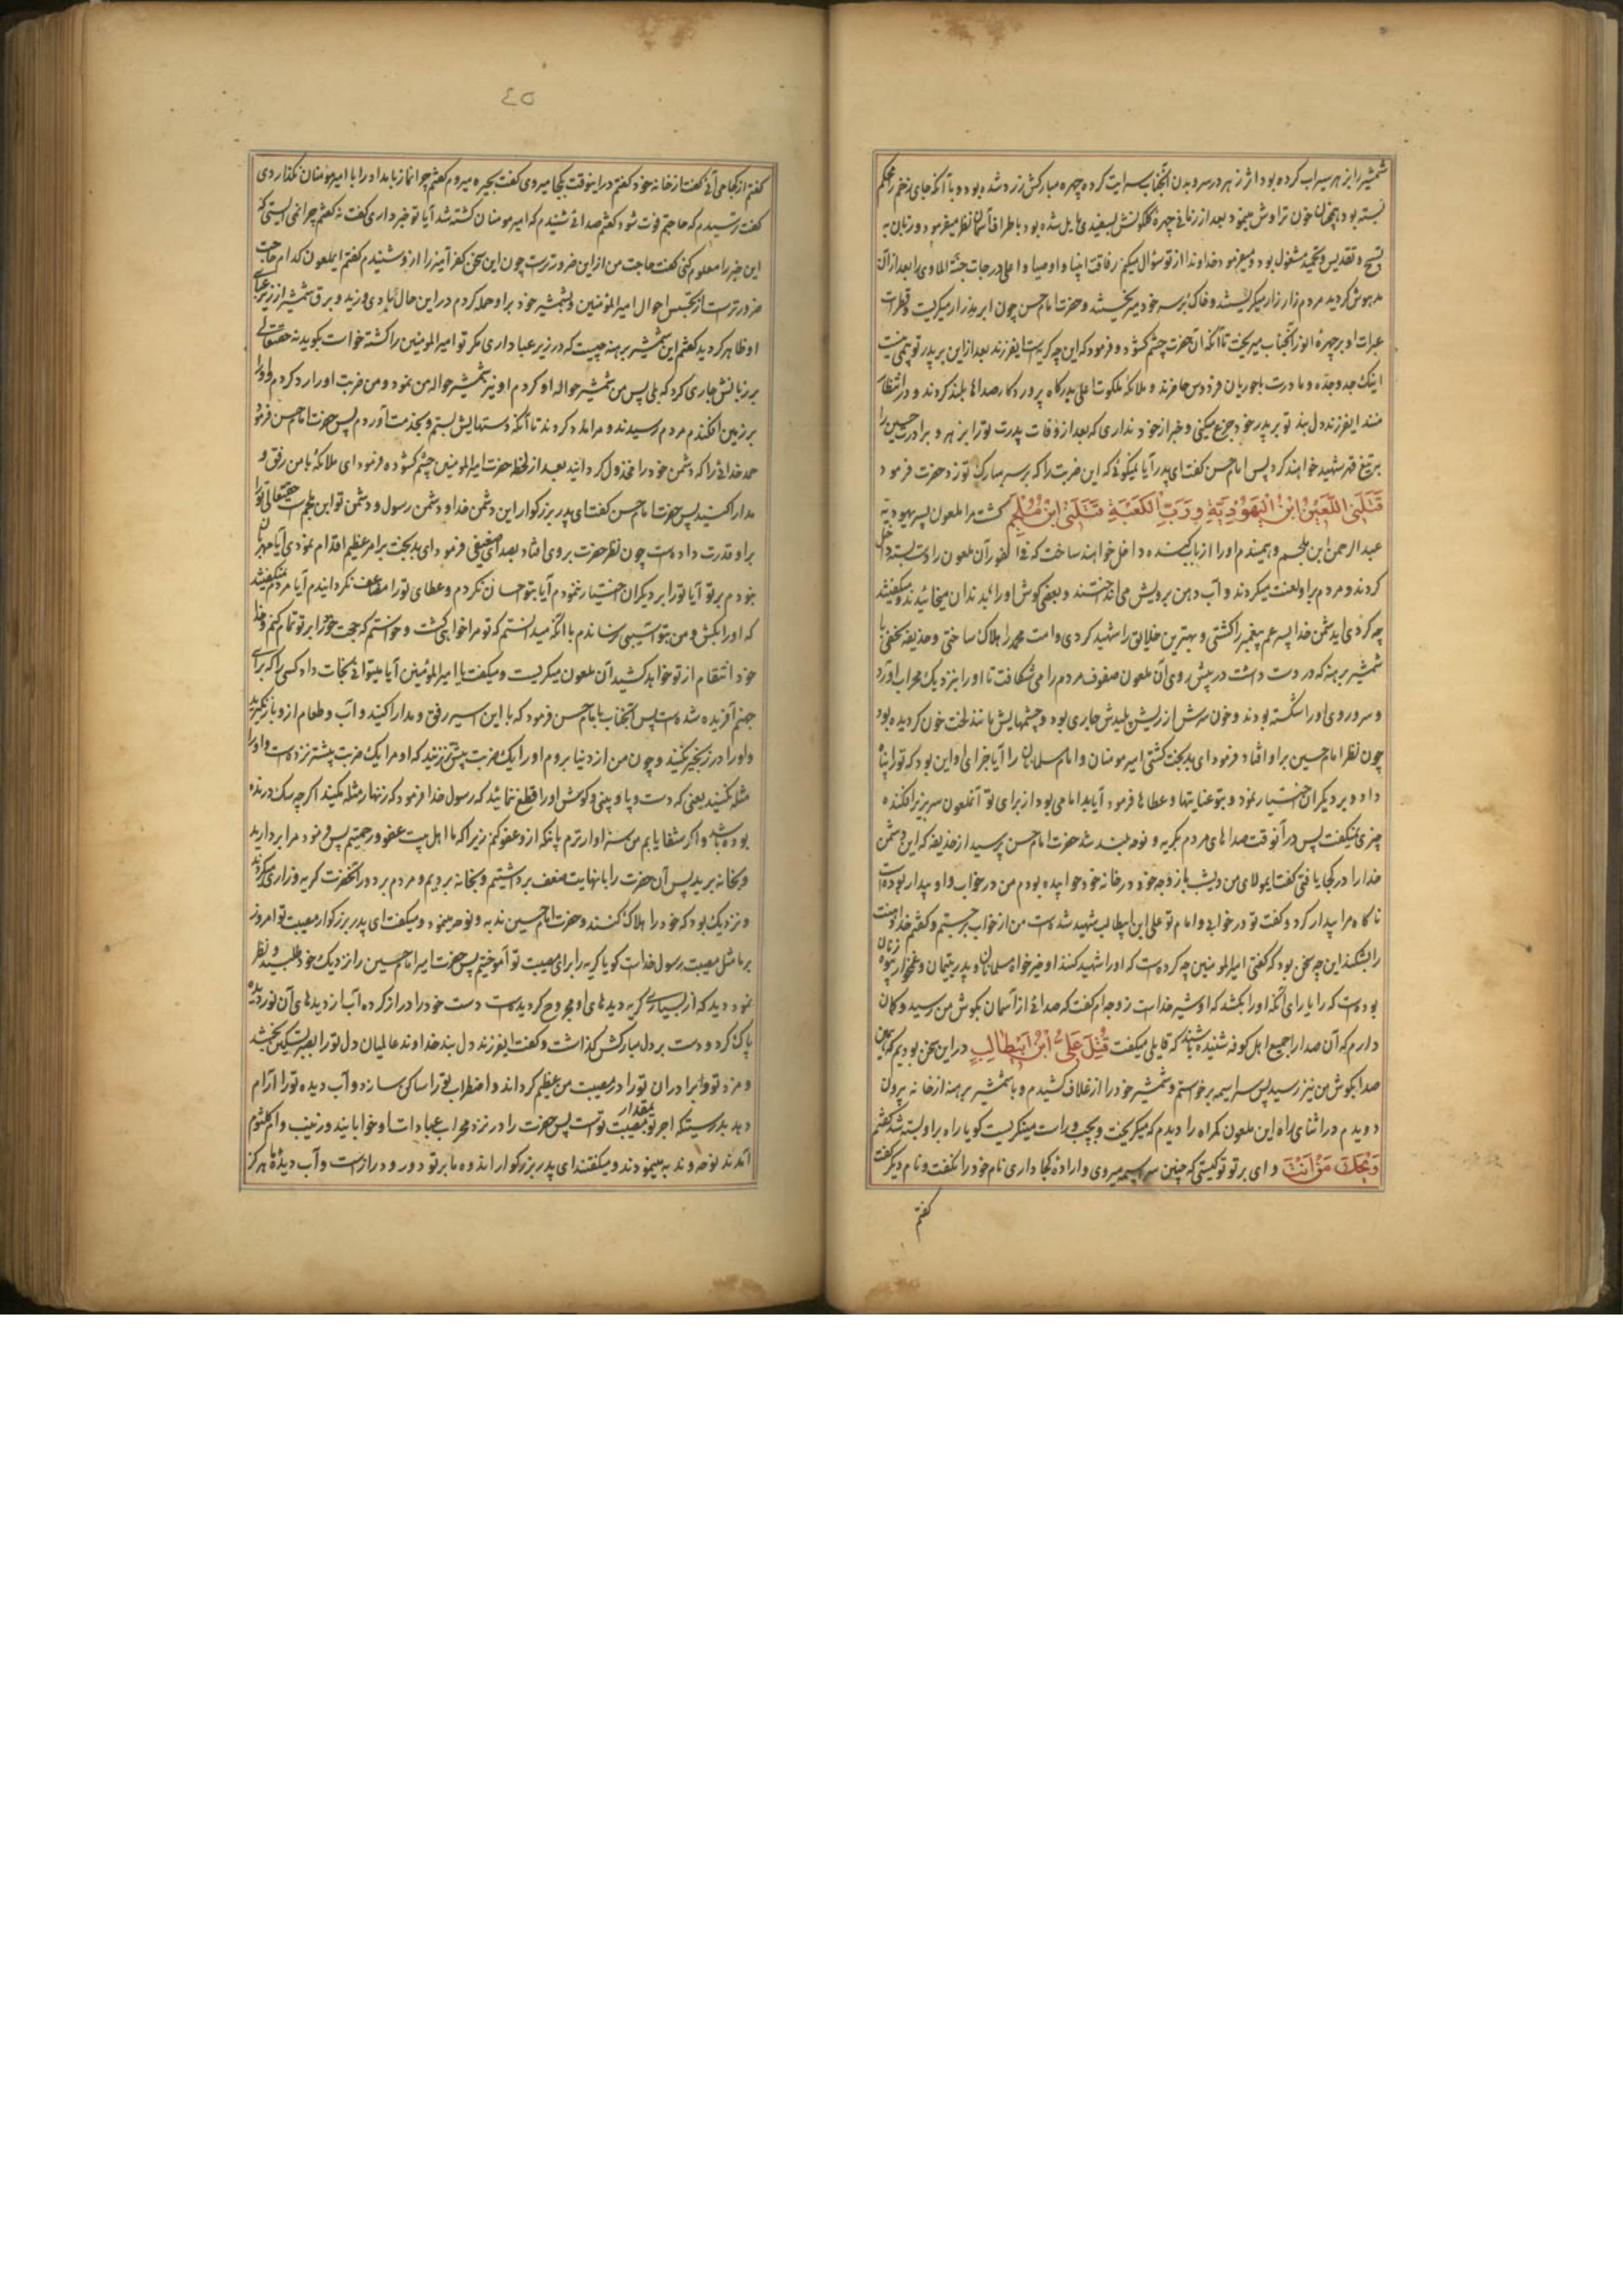 شمشیر را بزهر سیراب کرده بود اثر زهر در سر و بدن آنجناب سرایت کرده چهره مبارکش زرد شده بود و با آنکه جای زخم را محکم
بسته بود همچنان خون تراوش مینمود بعد از زمانی چهرهٔ گلگونش بسفیدی مایل شده بود باطراف آسمان نظر میفرمود و زبان به
تسبیح و تقدیس و تحمید مشغول بود و میفرمود خداوندا از تو سؤال میکنم رفاقت انبیا و اوصیا و اعلی درجات جنّة الماوی را بعد از آن
مدهوش گردید مردم زار زار میگریستند و خاک بر سر خود میریختند و حضرت امام حسن چون ابر بهار زار میگریست و قطرات
عبرات او بر چهرهٔ انور آنجناب میریخت تا آنکه آن حضرت چشم گشود و فرمود که این چه گریه است ایفرزند بعد از این بر پدر تو بیمی نیست
اینک جد و جدّه و مادرت با حوریان فردوس حاضرند و ملائکهٔ ملکوت اعلی بدرگاه پروردگار صداها بلند کردند و در انتظار
منند ایفرزند دل بند تو بر پدر خود جزع میکنی و خبر از خود نداری که بعد از وفات پدرت تو را بزهر و برادرت حسین را
بتیغ قهر شهید خواهند کرد پس امام حسن گفت ای پدر آیا نمیگوئی که این ضربت را که بر سر مبارک تو زد حضرت فرمود
قَتَلَنِی اللَّعِینُ ابْنُ الْیَهُوْدِیَّةِ وَرَبِّ الْکَعْبَةِ قَتَلَنِی ابْنُ مُلْجَمٍ کشت مرا ملعون پسر یهودیه
عبدالرحمن ابن ملجم و همیندم او را از باب کنده داخل خواهند ساخت که فی الفور آن ملعون را دست بسته داخل
کردند و مردم براو لعنت میکردند و آب دهن برویش می انداختند و بعضی گوش او را بدندان میخائیدند و میگفتند
چه کردی ایدشمن خدا پسر عم پیغمبر را کشتی و بهترین خلایق را شهید کردی و امت محمد را هلاک ساختی و حذیفه نخعی با
شمشیر برهنه که در دست داشت در پیش روی آن ملعون صفوف مردم را می شکافت تا او را بنزدیک محراب آورد
و سر و روی او را شکسته بودند و خون سرش از ریش پلیدش جاری بود و چشمهایش مانند لخت خون گردیده بود
چون نظر امام حسین براو افتاد فرمود ای بدبخت کشتی امیر مومنان و امام مسلمانان را آیا جزای او این بود که تو را پناه
داد و بر دیگران اختیار نمود و بتو عنایتها و عطاها فرمود آیا بد امامی بود از برای تو آنملعون سر بزیر افکنده
چیزی نمیگفت پس در آنوقت صداهای مردم بگریه و نوحه بلند شد حضرت امام حسن پرسید از حذیفه که این دشمن
خدا را در کجا یافتی گفت ایمولای من دیشب با زوجه خود در خانه خود خوابیده بودم من در خواب و او بیدار بوده است
ناگاه مرا بیدار کرد و گفت تو در خوابی و امام تو علی ابن ابیطالب شهید شده است من از خواب جستم و گفتم خدا دهنت
را بشکند این چه سخن بود که گفتی امیرالمومنین چه کرده است که او را شهید کنند او خیرخواه مسلمانان و پدر یتیمان و غمخوار زنان بیوه
بوده است که را یارای آنکه او را بکشد که او شیر خداست زوجه ام گفت که صدائی از آسمان بگوش من رسید و گمان
دارم که آن صدا را جمیع اهل کوفه شنیده باشند که قایلی میگفت قُتِلَ عَلِیُّ ابْنُ ابِیطَالِبٍ در این سخن بودیم که همین
صدا بگوش من نیز رسید پس سراسیمه برخواستم و شمشیر خود را از غلاف کشیدم و با شمشیر برهنه از خانه بیرون
دویدم در اثنای راه این ملعون گمراه را دیدم که میگریخت و بچپ و راست مینگریست گویا راه براو بسته شد گفتم
وَیْحَکَ مَنْ اَنْتَ وای بر تو تو کیستی که چنین سراسیمه میروی و ارادهٔ کجا داری نام خود را نگفت و نام دیگر گفت
گفتم
٤٥
گفتم از کجا می آئی گفت از خانه خود گفتم در اینوقت بکجا میروی گفت بحیره میروم گفتم چرا نماز بامداد را با امیر مومنان نگذاردی
گفت ترسیدم که حاجتم فوت شود گفتم صدائی شنیدم که امیر مومنان کشته شد آیا تو خبر داری گفت نه گفتم چرا نمی ایستی که
این خبر را معلوم کنی گفت حاجت من از این ضرورتر است چون این سخن کفرآمیز را از او شنیدم گفتم ایملعون کدام حاجت
ضرورتر است از تجسس احوال امیرالمومنین و شمشیر خود براو حمله کردم در این حال بادی وزید و برق شمشیر از زیر عبای
او ظاهر گردید گفتم این شمشیر برهنه چیست که در زیر عبا داری مگر تو امیرالمومنین را کشته خواست بگوید نه حقتعالی
بر زبانش جاری کرد که بلی پس من شمشیر حواله او کردم او نیز شمشیر حواله من نمود و من ضربت او را رد کردم و او را
بر زمین افکندم مردم رسیدند و مرا مدد کردند تا آنکه دستهایش بستم و بخدمت آوردم پس حضرت امام حسن فرمود
حمد خدائی را که دشمن خود را مخذول گردانید بعد از لحظه حضرت امیرالمومنین چشم گشوده فرمود ای ملائکهٔ با من رفق و
مدارا کنید پس حضرت امام حسن گفت ای پدر بزرگوار این دشمن خدا و دشمن رسول و دشمن تو ابن ملجم است حقتعالی تو را
براو قدرت داده است چون نظر حضرت بروی افتاد بصدای ضعیفی فرمود ای بدبخت برامر عظیم اقدام نمودی آیا مهربان
نبودم بر تو آیا تو را بر دیگران اختیار ننمودم آیا بتو احسان نکردم و عطای تو را مضاعف نگردانیدم آیا مردم نمیگفتند
که او را بکش و من بتو آسیبی نرساندم با آنکه میدانستم که تو مرا خواهی کشت و خواستم که حجت خود را بر تو تمام کنم و خدا
خود انتقام از تو خواهد کشید آن ملعون میگریست و میگفت یا امیرالمؤمنین آیا میتوانی نجات داد کسی را که برای
جهنم آفریده شده است پس آنجناب با امام حسن فرمود که با این اسیر رفق و مدارا کنید و آب و طعام از او باز نگیرید
و او را در زنجیر نکنید و چون من از دنیا بروم او را یک ضربت بیش نزنید که او مرا یک ضربت بیشتر نزده است و او را
مثله نکنید یعنی که دست و پا و بینی و گوش او را قطع ننمائید که رسول خدا فرمود که زنهار مثله نکنید اگرچه سگ درنده
بوده باشد و اگر شفا یابم من سزاوارترم بآنکه از او عفو کنم زیرا که ما اهل بیت عفو و رحمتیم پس فرمود مرا بردارید
و بخانه برید پس آن حضرت را با نهایت ضعف برداشتیم و بخانه بردیم و مردم بر دور آنحضرت گریه و زاری میکردند
و نزدیک بود که خود را هلاک کنند و حضرت امام حسین ندبه و نوحه مینمود و میگفت ای پدر بزرگوار مصیبت تو امروز
بر ما مثل مصیبت رسول خداست گویا گریه را برای مصیبت تو آموختیم پس حضرت امیر امام حسین را نزدیک خود طلبید و نظر
نمود دید که از بسیاری گریه دیدهای او مجروح گردیده است دست خود را دراز کرده آب از دیدهای آن نور دیده
پاک کرد و دست بر دل مبارکش گذاشت و گفت ایفرزند دل بند خداوند عالمیان دل تو را بصبر تسکین بخشد
و مزد تو و برادران تو را در مصیبت من عظیم گرداند و اضطراب تو را ساکن سازد و آب دیده تو را آرام
دهد بدرستیکه اجر تو بمقدار مصیبت تو است پس حضرت را در نزد محراب عبادات او خوابانیدند و زینب و ام کلثوم
آمدند نوحه و ندبه مینمودند و میگفتند ای پدر بزرگوار اندوه ما بر تو دور و دراز است و آب دیدهٔ ما هرگز